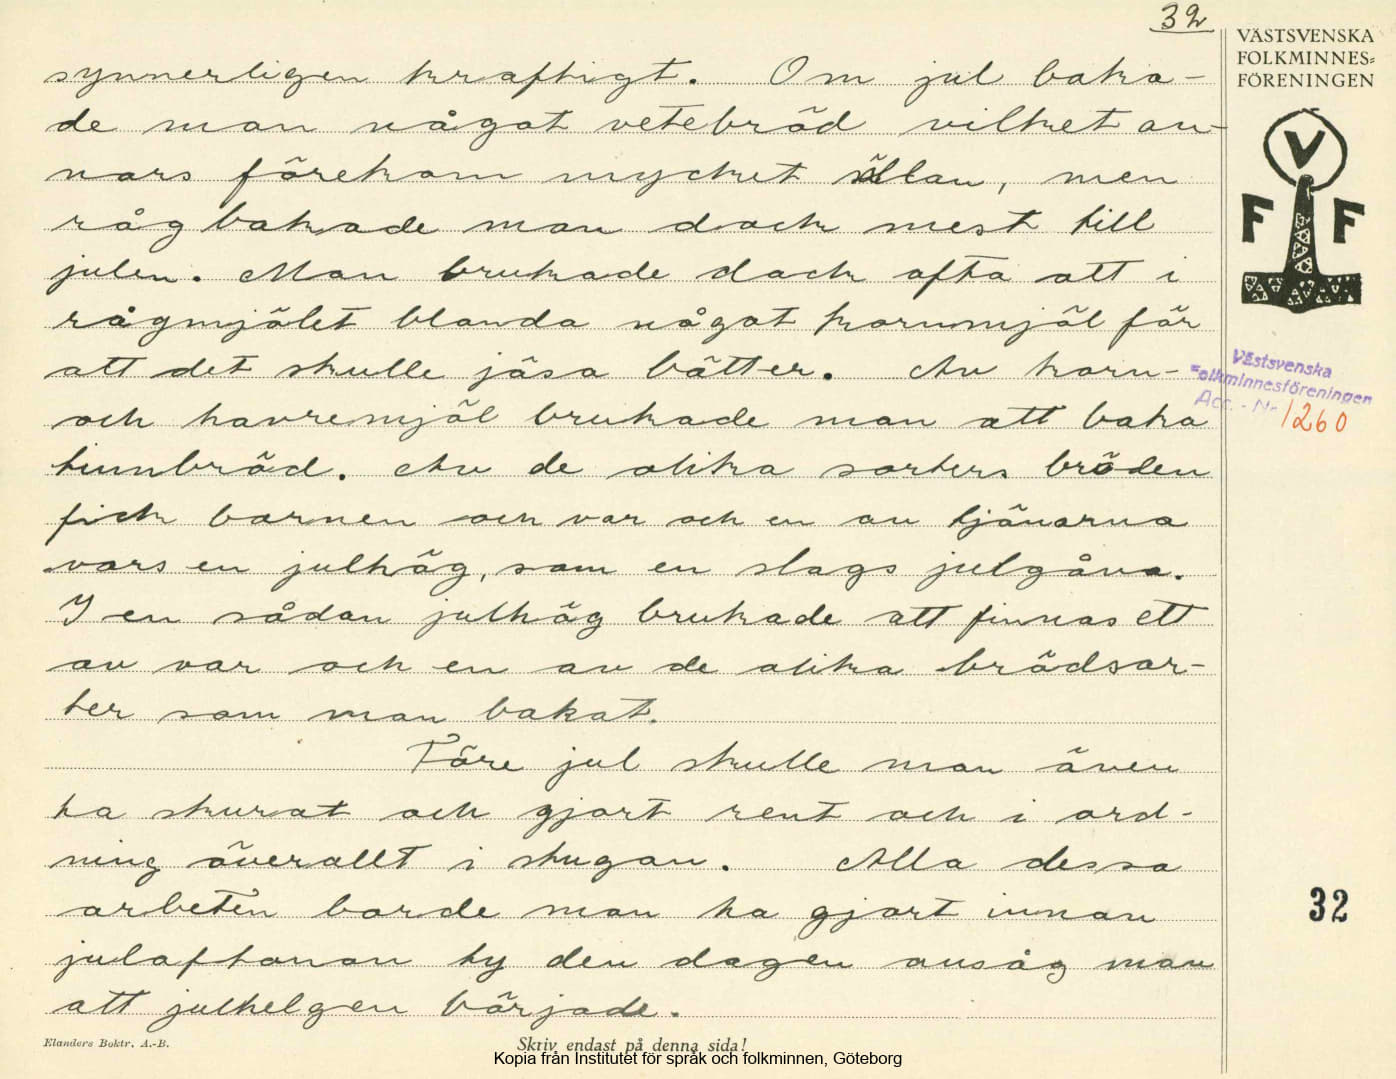 32
VÄSTSVENSKA
FOLKMINNES=
FÖRENINGEN
V
F F
synnerligen kraftigt. Om jul baka-
de man något vetebröd vilket an-
nars förekom mycket sällan, men
råg bakade man dock mest till
julen. Man brukade dock ofta att i
rågmjölet blanda något kornmjöl för
att det skulle jäsa bätter. Av korn-
och havremjöl brukade man att baka
tunnbröd. Av de olika sorters bröden
fick barnen och var och en av tjänarna
vars en julhög, som en slags julgåva.
I en sådan julhög brukade att finnas ett
av var och en av de olika brödsor-
ter som man bakat.
Före jul skulle man även
ha skurat och gjort rent och i ord-
ning överallt i stugan. Alla dessa
arbeten borde man ha gjort innan
julaftonan ty den dagen ansåg man
att julhelgen började.
Västsvenska
Folkminnesföreningen
Acc. - Nr 1260
32
Elanders Boktr. A.-B.
Skriv endast på denna sida!
Kopia från Institutet för språk och folkminnen, Göteborg